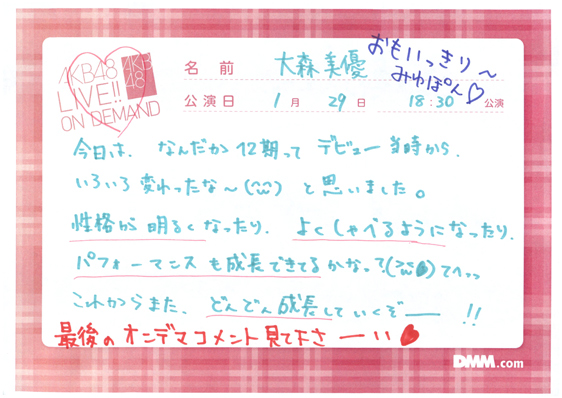 AKB48
LIVE!!
ON DEMAND
AKB
48
名前 大森美優
おもいっきり〜
みゆぽん♡
公演日 1月 29日 18:30 公演
今日は、なんだか12期って デビュー当時から、
いろいろ変わったな〜(^^) と思いました。
性格が明るくなったり、よくしゃべるようになったり、
パフォーマンスも成長できてるかなって?
これからまた、どんどん成長していくぞー !!
最後のオンデマコメント見て下さーい♥
DMM.com